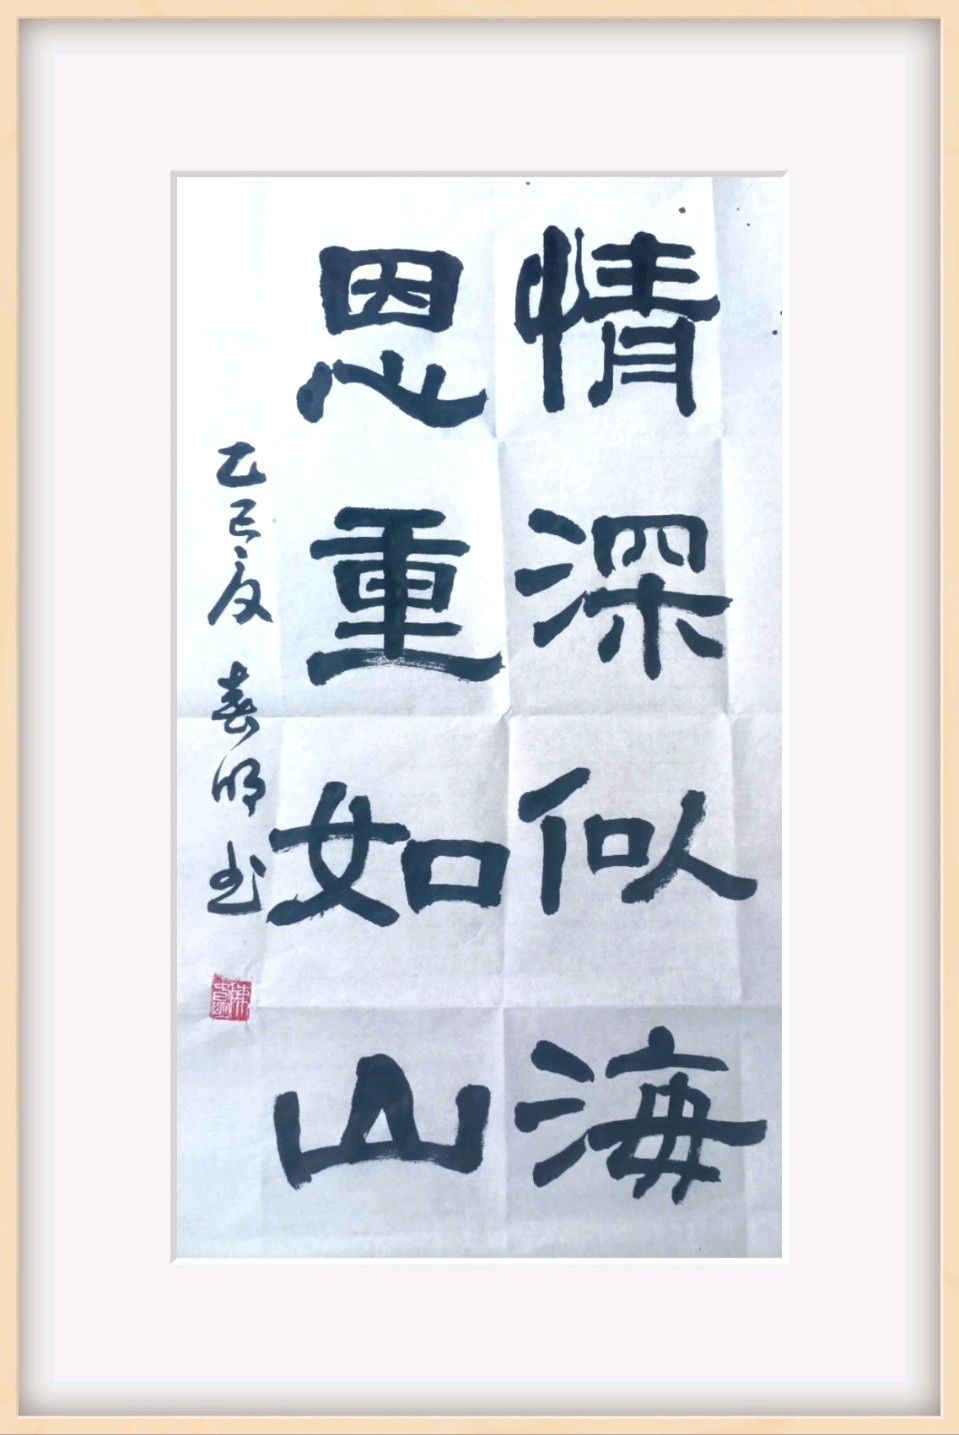 情深似海
恩重如山
乙巳夏 春明书